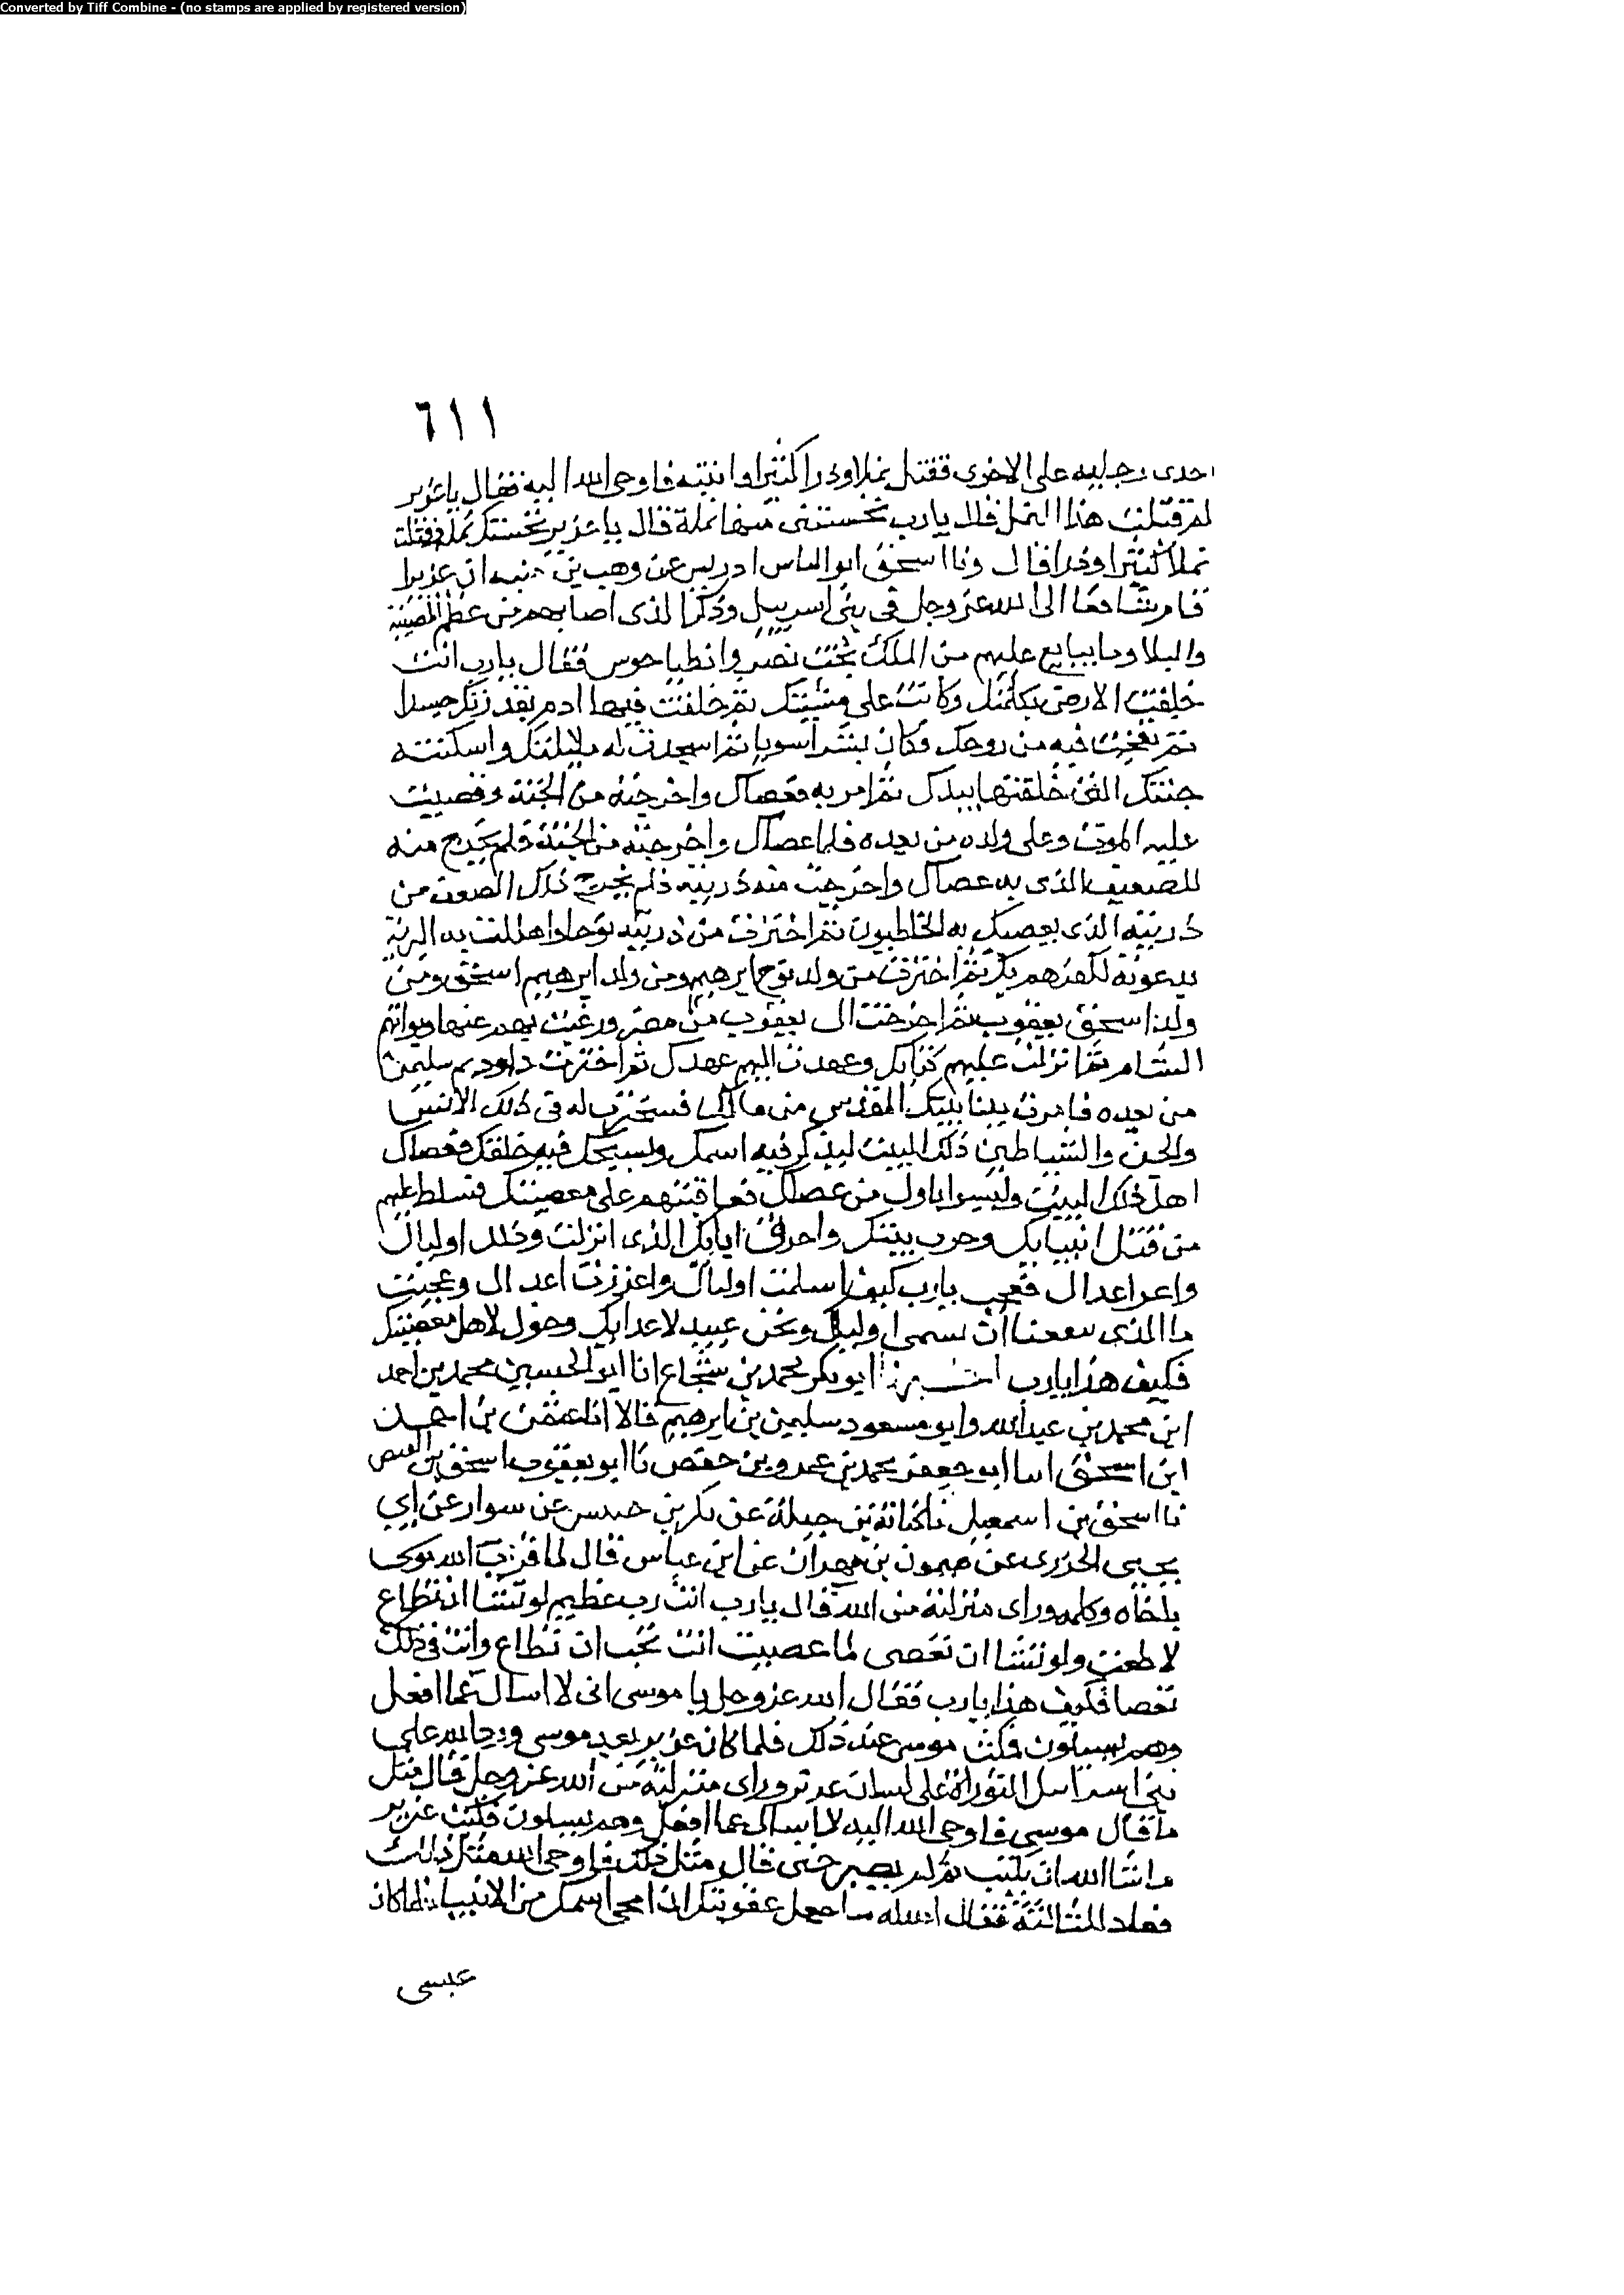 Converted by Tiff Combine - (no stamps are applied by registered version)
٦١١
احدى رجليه على الاخرى فقتل نملا وذرا كثيرا وانتبه فاوحى الله اليه فقال يا عزير
لم قتلت هذا النمل قال يارب نخستنى منها نملة قال يا عزير نخستك نملة فقتلت
نملا كثيرا وذرا قال ونا اسحق ابو الياس ادريس عن وهب بن منبه ان عزيرا
قام شافعا الى الله عز وجل فى بنى اسرييل وذكر الذى اصابهم من عظم المصيبة
والبلا وما يتابع عليهم من الملك بخت نصر وانطياحوس فقال يارب انت
خلقت الارض بكلمتك وكانت على مشيتك ثم خلقت فيها ادم بقدرتك جسدا
ثم نفخت فيه من روحك فكان بشرا سويا ثم اسجدت له ملايكتك واسكنته
جنتك التى خلقتها بيدك ثم امر به فعصاك واخرجته من الجنة وقضيت
عليه الموت وعلى ولده من بعده فلما عصاك واخرجته من الجنة فلم يخرج منه
الضعف الذى به عصاك واخرجت منه ذريته فلم يخرج ذلك الضعف من
ذريته الذى يعصيك به الخاطيون ثم اخترت من ذريته نوحا واهلكت به البرية
بدعوته لكفرهم بك ثم اخترت من ولد نوح ابرهيم ومن ولد ابرهيم اسحق ومن
ولد اسحق يعقوب ثم اخرجت ال يعقوب من مصر ورغبت بهم عنها وبواتهم
الشام ثم انزلت عليهم كتابك وعهدت اليهم عهدك ثم اخترت داود ثم سليمن
من بعده فامرت ببنا بيتك المقدس فسخرت له فى ذلك الانس
والجن والشياطين ذلك البيت ليذكر فيه اسمك ويسبحك فيه خلقك فعصاك
اهل ذلك البيت وليسوا باول من عصاك فعاقبتهم على معصيتك فتسلط عليهم
من قتل انبيايك وخرب بيتك واحرق اياتك الذى انزلت وذلل اولياك
واعز اعداك فعجب يارب كيف اسلمت اولياك واعززت اعداك وعجبت
ما الذى نفعنا ان نسمى اولياك ونحن عبيد لاعدايك وخول لاهل معصيتك
فكيف هذا يارب اخبرنا ابو بكر محمد بن شجاع انا ابو الحسين محمد بن احمد
ابن محمد بن عبد الله وابو مسعود سليمن بن ابرهيم قالا انا عثمن بن احمد
ابن اسحق ابو جعفر محمد بن عمرو بن حفص نا ابو يعقوب اسحق بن الفيض
نا اسحق بن اسمعيل نا كنانة بن جبلة عن بكر بن خنيس عن سوار عن ابى
يحيى الجزرى عن ميمون بن مهران عن ابن عباس قال لما قرب الله موسى
بلخاه وكلمه وراى منزلته من الله قال يارب انت رب عظيم لو تشا ان تطاع
لاطعت ولو تشا ان تعصى لما عصيت انت تحب ان تطاع وانت فى ذلك
تعصا فكيف هذا يارب فقال الله عز وجل يا موسى انى لا اسال عما افعل
وهم يسلون فكت موسى عند ذلك فلما كان عزير بعد موسى ورد الله على
بنى اسراسل التوراة على لسان عزير وراى منزلته من الله عز وجل قال مثل
ما قال موسى فاوحى الله اليه لا اسال عما افعل وهم يسلون فكت عزير
ما شا الله ان يكت ثم لم يصبر حتى قال مثل ذلك فاوحى الله مثل ذلك
فعاد الثالثة فقال الله ساجعل عقوبتك ان امحى اسمك من الانبيا فلما كان
عيسى